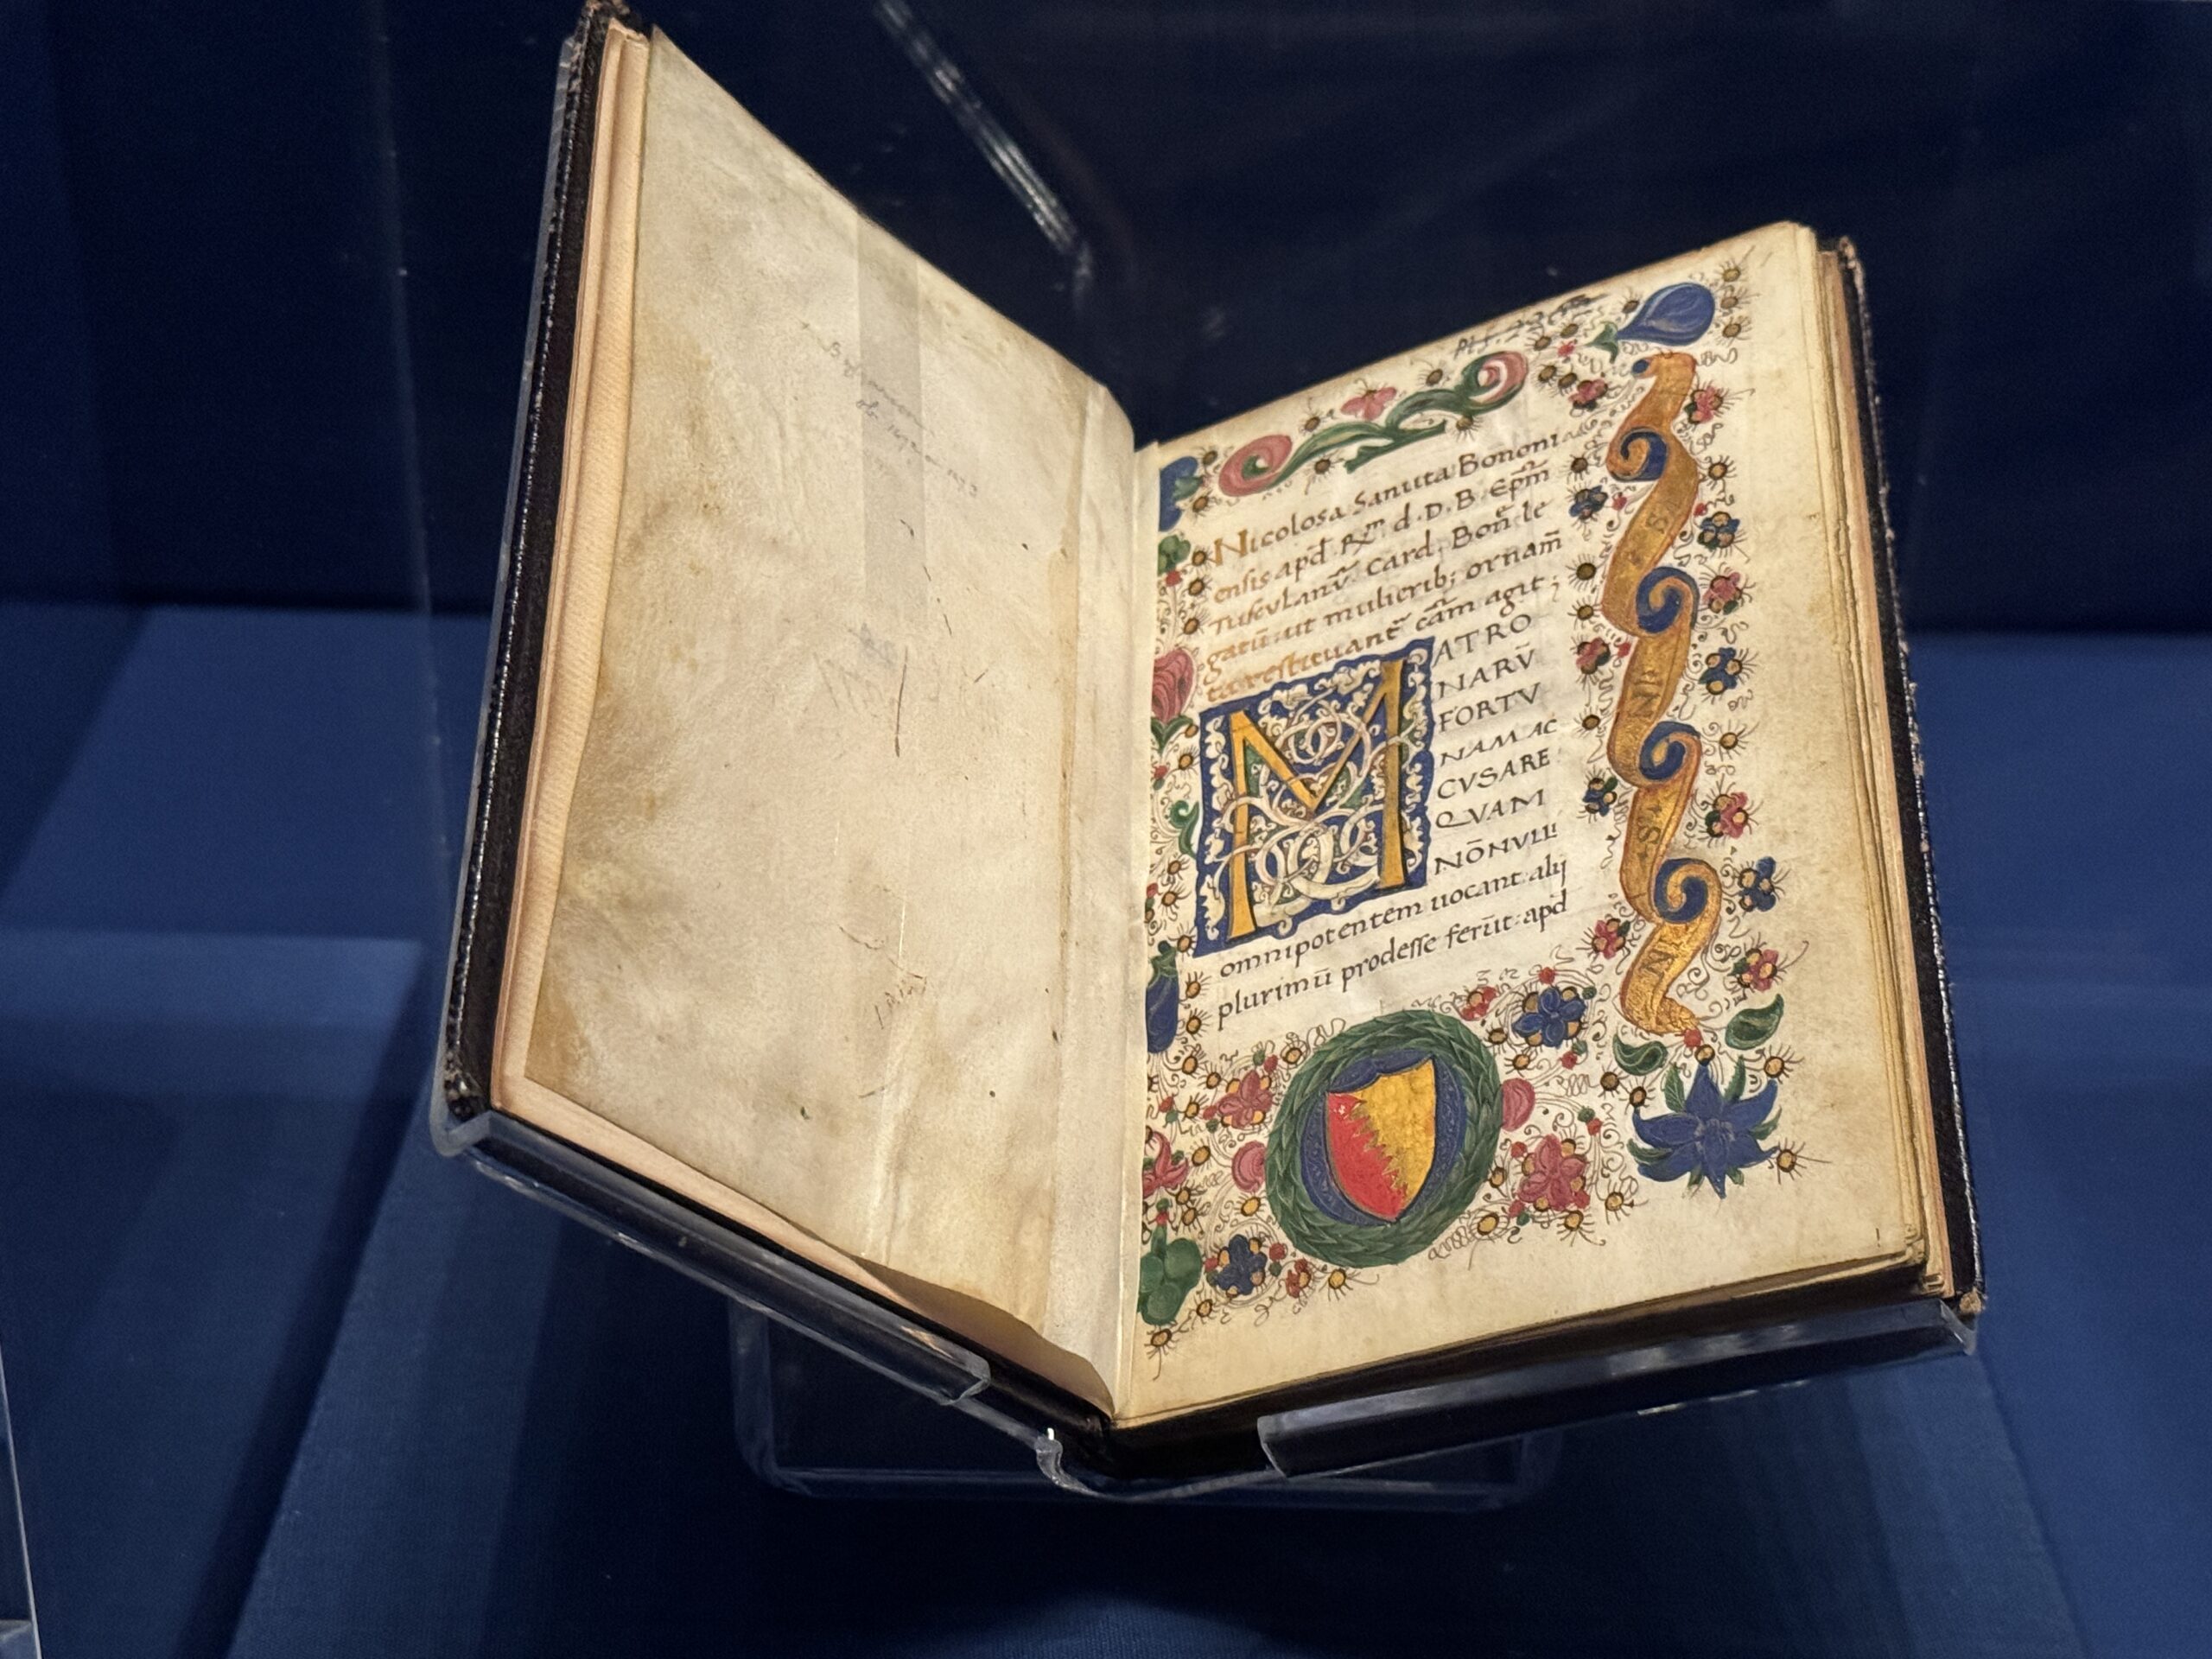 Nicolosa Sanuta Bononi
ensis apd Rm̄ d. D. B. Epm̄
Tusculanū Card; Bon̄ le
gatū ut mulierib; ornam̄
ta restituant̄ cām agit;
MATRO
NARV̄
FORTV
NAM AC
CVSARE
QVAM
NŌNVLLI
omnipotentem uocant: alij
plurimū prodesse ferūt: apd
S
NI
S
NI